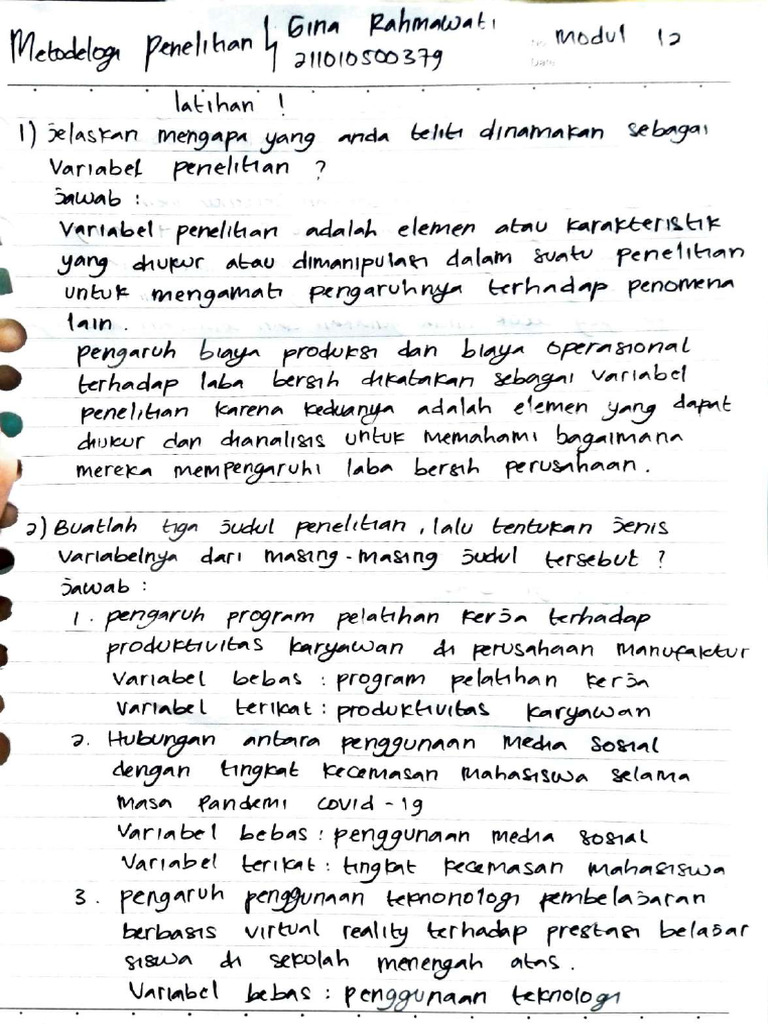 Metodelogi Penelitian
Gina Rahmawati
211010500379
Modul 12
No.
Date
latihan !
1) Jelaskan mengapa yang anda teliti dinamakan sebagai
Variabel penelitian ?
Jawab :
Variabel penelitian adalah elemen atau karakteristik
yang diukur atau dimanipulasi dalam suatu penelitian
untuk mengamati pengaruhnya terhadap penomena
lain.
pengaruh biaya produksi dan biaya operasional
terhadap laba bersih dikatakan sebagai variabel
penelitian karena keduanya adalah elemen yang dapat
diukur dan dianalisis untuk memahami bagaimana
mereka mempengaruhi laba bersih perusahaan.
2) Buatlah tiga Judul penelitian, lalu tentukan Jenis
Variabelnya dari masing-masing Judul tersebut ?
Jawab :
1. pengaruh program pelatihan kerja terhadap
produktivitas karyawan di perusahaan manufaktur
Variabel bebas : program pelatihan kerja
Variabel terikat : produktivitas karyawan
2. Hubungan antara penggunaan media sosial
dengan tingkat kecemasan mahasiswa selama
masa Pandemi covid-19
Variabel bebas : penggunaan media sosial
Variabel terikat : tingkat kecemasan mahasiswa
3. pengaruh penggunaan teknonologi pembelajaran
berbasis virtual reality terhadap prestasi belajar
siswa di sekolah menengah atas.
Variabel bebas : penggunaan teknologi